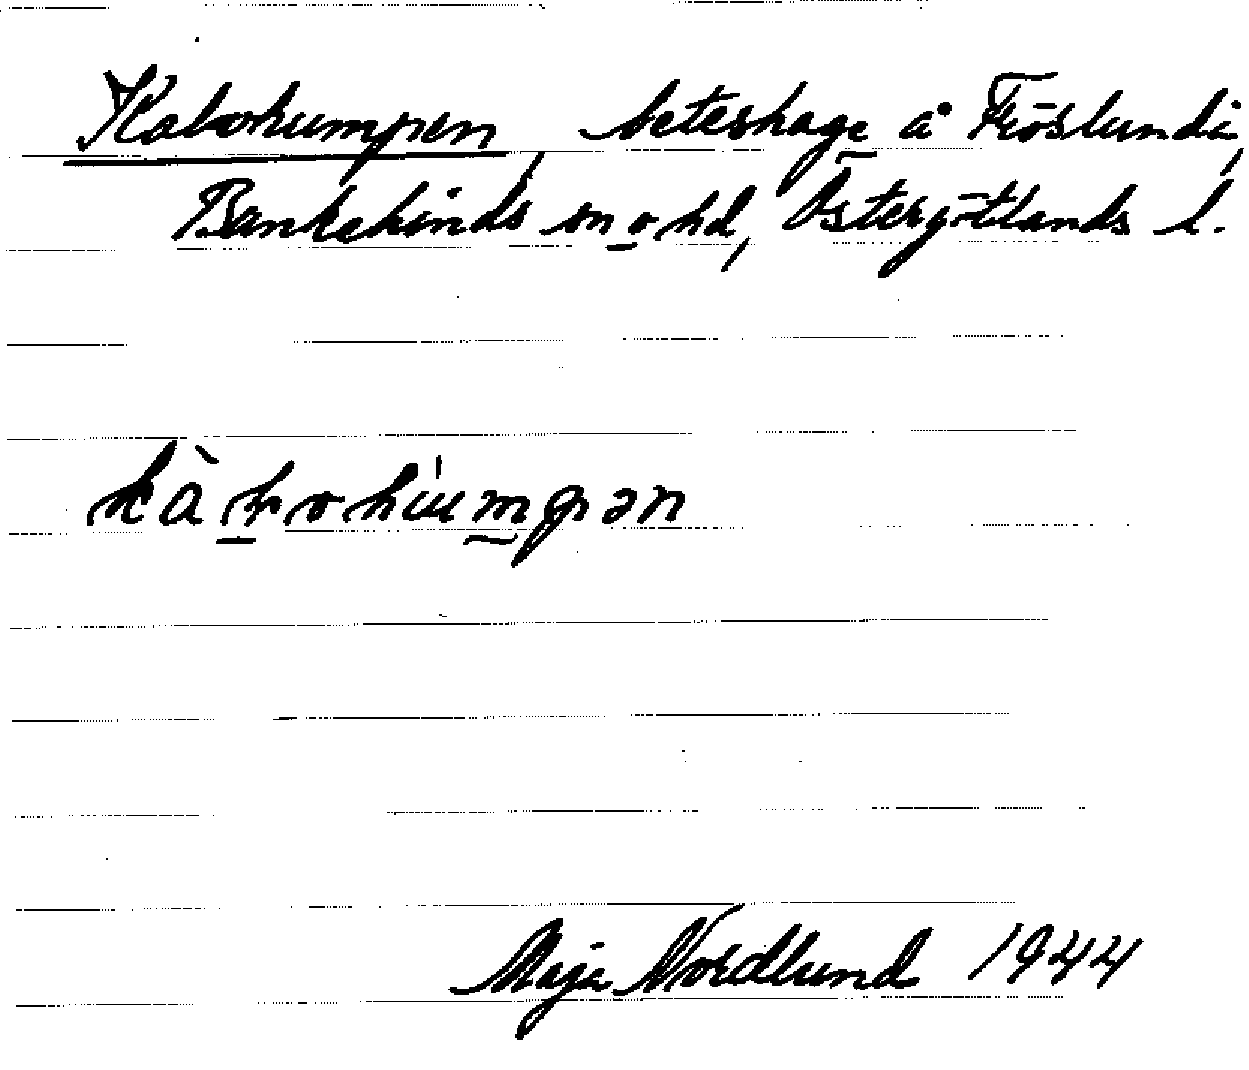 Kalvkumpen, beteshage å Fröslunda,
Bankekinds sn o hd, Östergötlands l.
Maja Nordlund 1944